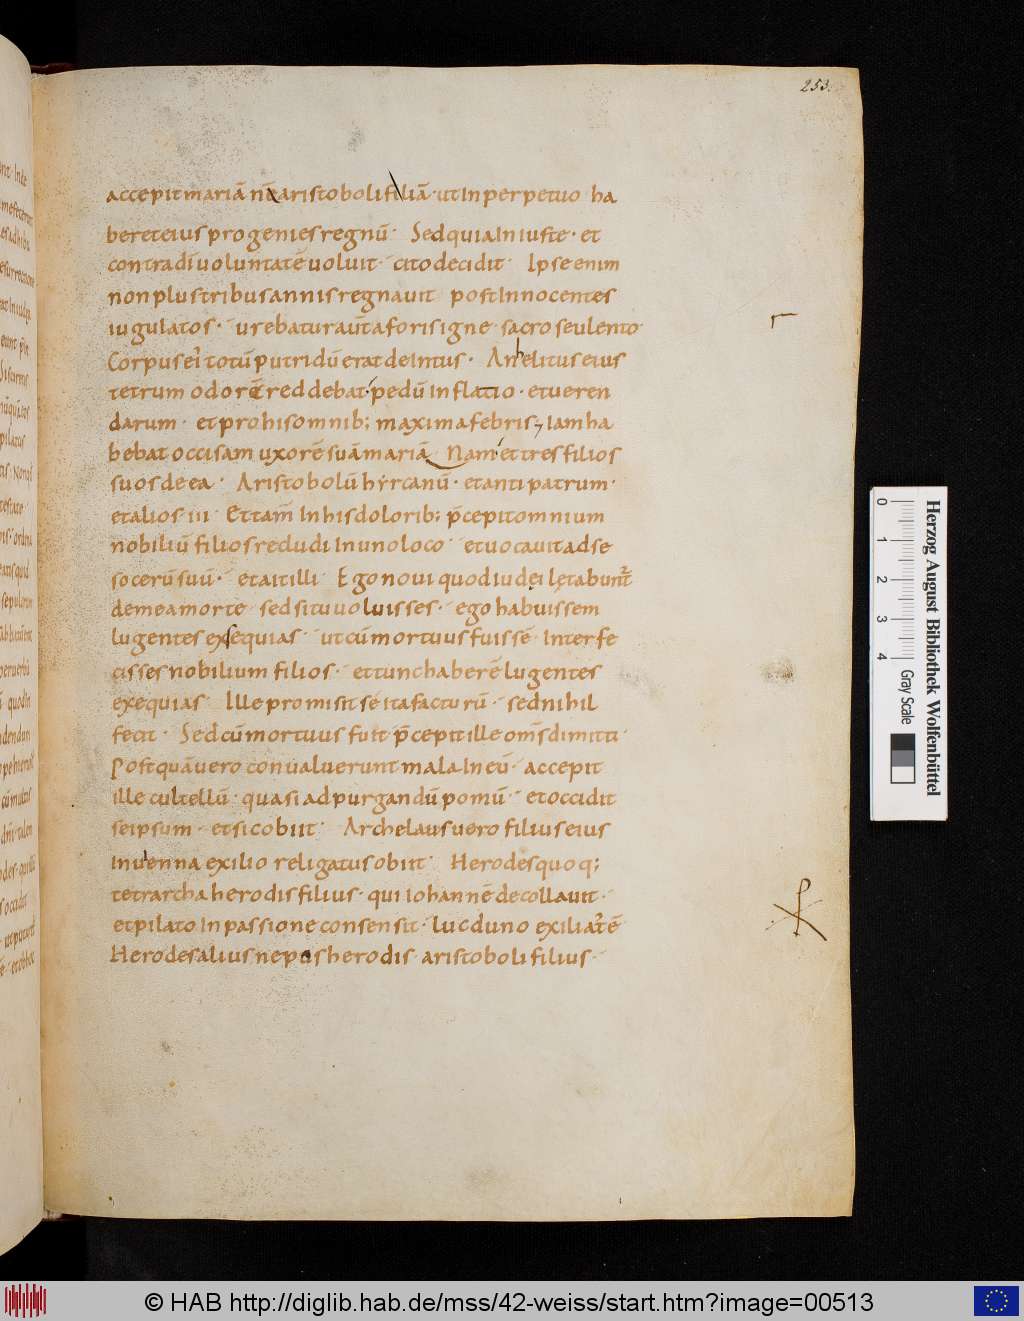 253
accepit mariā nēaristoboli filiā · ut In perpetuo ha
bereteius progenies regnū · Sed quia In iuste · et
contra dī uoluntatē uoluit · cito decidit · Ipse enim
non plus tribus annis regnauit post Innocentes
iugulatos · urebatur autē a foris igne sacro seu lento
Corpus eī totū putridū erat de Intus · Anhelitus eius
tetrum odorē reddebat · pedū Inflatio · et ueren
darum · et pro his omnib; maxima febris, Iam ha
bebat occisam uxorē suā mariā Nam et tres filios
suos de ea · Aristobolū hyrcanū · et antipatrum ·
et alios iii Et tam̄ In his dolorib; p̄cepit omnium
nobiliū filios recludi In uno loco · et uocauit ad se
socerū suū · et ait illi Ego noui quod iudęi lętabunt̄
de mea morte sed si tu uoluisses · ego habuissem
lugentes exsequias · ut cū mortuus fuissē Interfe
cisses nobilium filios · et tunc haberē lugentes
exequias Ille promisit se ita facturū · sed nihil
fecit · Sed cū mortuus fuit p̄cepit ille om̄s dimitti ·
Postquā uero conualuerunt mala In eū · accepit
ille cultellū · quasi ad purgandū pomū · et occidit
se ipsum · et sic obiit · Archelaus uero filius eius
In uienna exilio religatus obiit · Herodes quoq;
tetrarcha herodis filius · qui iohannē decollauit ·
et pilato In passione consensit · lucduno exiliat̄ ē
Herodes alius nepos herodis · aristoboli filius ·
0 1 2 3 4
Gray Scale
Herzog August Bibliothek Wolfenbüttel
© HAB http://diglib.hab.de/mss/42-weiss/start.htm?image=00513